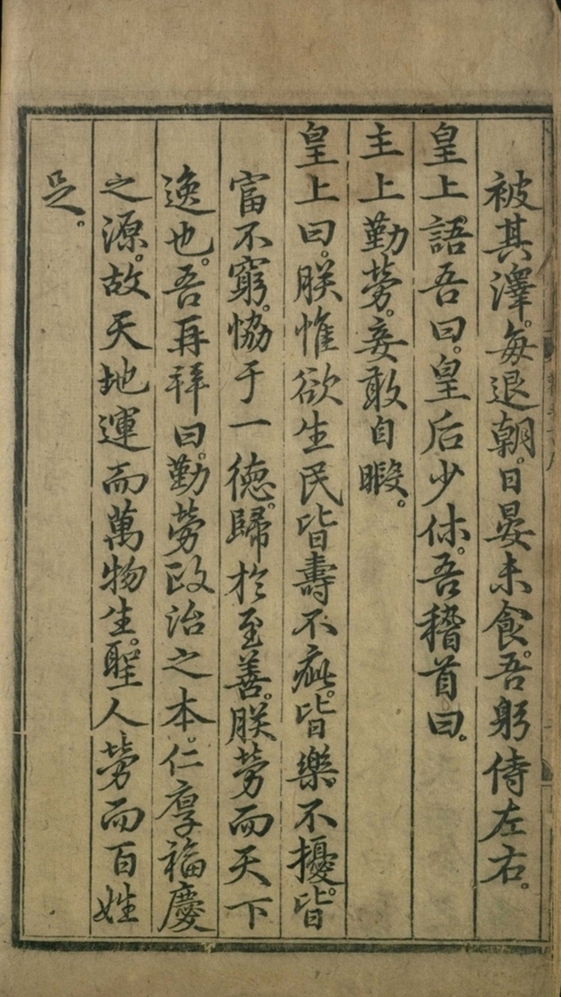 被其澤。每退朝。日晏未食。吾躬侍左右。
皇上語吾曰。皇后少休。吾稽首曰。
主上勤勞。妾敢自暇。
皇上曰。朕惟欲生民皆壽不疵。皆樂不擾。皆
富不窮。恊于一德。歸於至善。朕勞而天下
逸也。吾再拜曰。勤勞政治之本。仁厚福慶
之源。故天地運而萬物生。聖人勞而百姓
足。